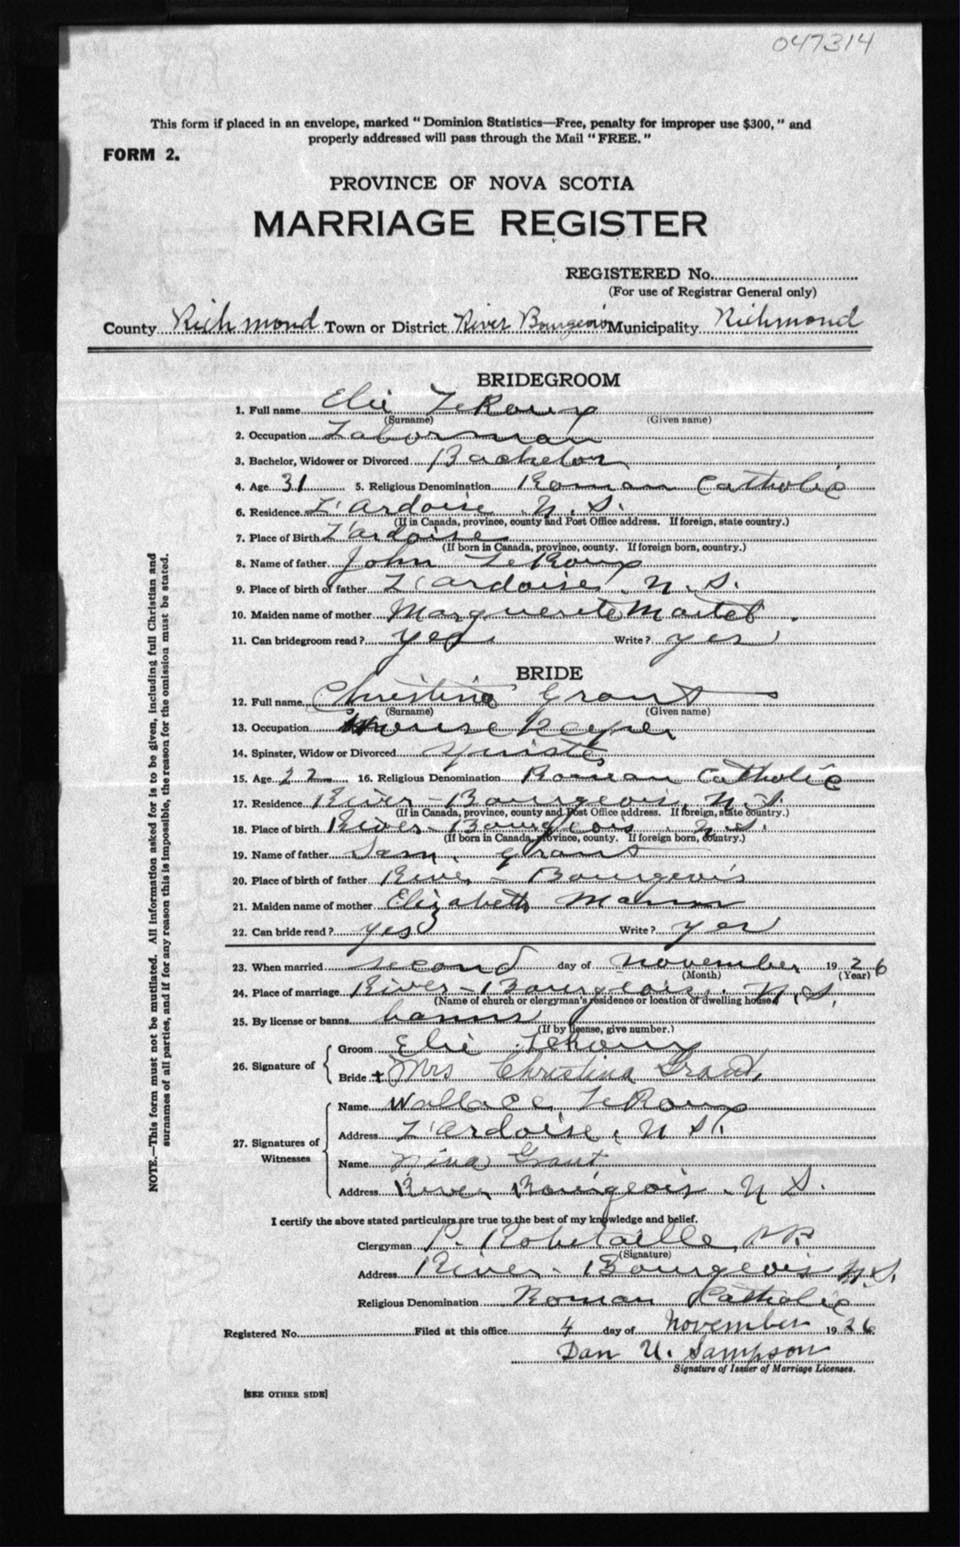 047314
This form if placed in an envelope, marked “ Dominion Statistics—Free, penalty for improper use $300, ” and
properly addressed will pass through the Mail “ FREE. ”
FORM 2.
PROVINCE OF NOVA SCOTIA
MARRIAGE REGISTER
REGISTERED No.
(For use of Registrar General only)
County Richmond Town or District River Bourgeois Municipality Richmond
BRIDEGROOM
1. Full name Elie LeRoux
(Surname) (Given name)
2. Occupation Laborman
3. Bachelor, Widower or Divorced Bachelor
4. Age 31 5. Religious Denomination Roman Catholic
6. Residence L'Ardoise N.S.
(If in Canada, province, county and Post Office address. If foreign, state country.)
7. Place of Birth L'ardoise
(If born in Canada, province, county. If foreign born, country.)
8. Name of father John LeRoux
9. Place of birth of father L'ardoise, N.S.
10. Maiden name of mother Marguerite Martel.
11. Can bridegroom read? yes Write? yes
BRIDE
12. Full name Christina Grant
(Surname) (Given name)
13. Occupation House Keeper
14. Spinster, Widow or Divorced
15. Age 22 16. Religious Denomination Roman Catholic
17. Residence River-Bourgeois, N.S.
(If in Canada, province, county and Post Office address. If foreign, state country.)
18. Place of birth River-Bourgeois N.S.
(If born in Canada, province, county. If foreign born, country.)
19. Name of father Sam. Grant
20. Place of birth of father River-Bourgeois
21. Maiden name of mother Elizabeth
22. Can bride read? yes Write? yes
23. When married second day of November 1926
(Month) (Year)
24. Place of marriage River-Bourgeois, N.S.
(Name of church or clergyman's residence or location of dwelling house)
25. By license or banns banns
(If by license, give number.)
26. Signature of
Groom Elie LeRoux
Bride + Mrs Christina Grant,
27. Signatures of
Witnesses
Name Wallace LeRoux
Address L'ardoise, N.S.
Name Nina Grant
Address River Bourgeois N.S.
I certify the above stated particulars are true to the best of my knowledge and belief.
Clergyman P. Robitaille, P.P.
(Signature)
Address River-Bourgeois N.S.
Religious Denomination Roman Catholic
Registered No. Filed at this office 4 day of November 1926
Dan U. Sampson
Signature of Issuer of Marriage Licenses.
[SEE OTHER SIDE]
NOTE.—This form must not be mutilated. All information asked for is to be given, including full Christian and
surnames of all parties, and if for any reason this is impossible, the reason for the omission must be stated.